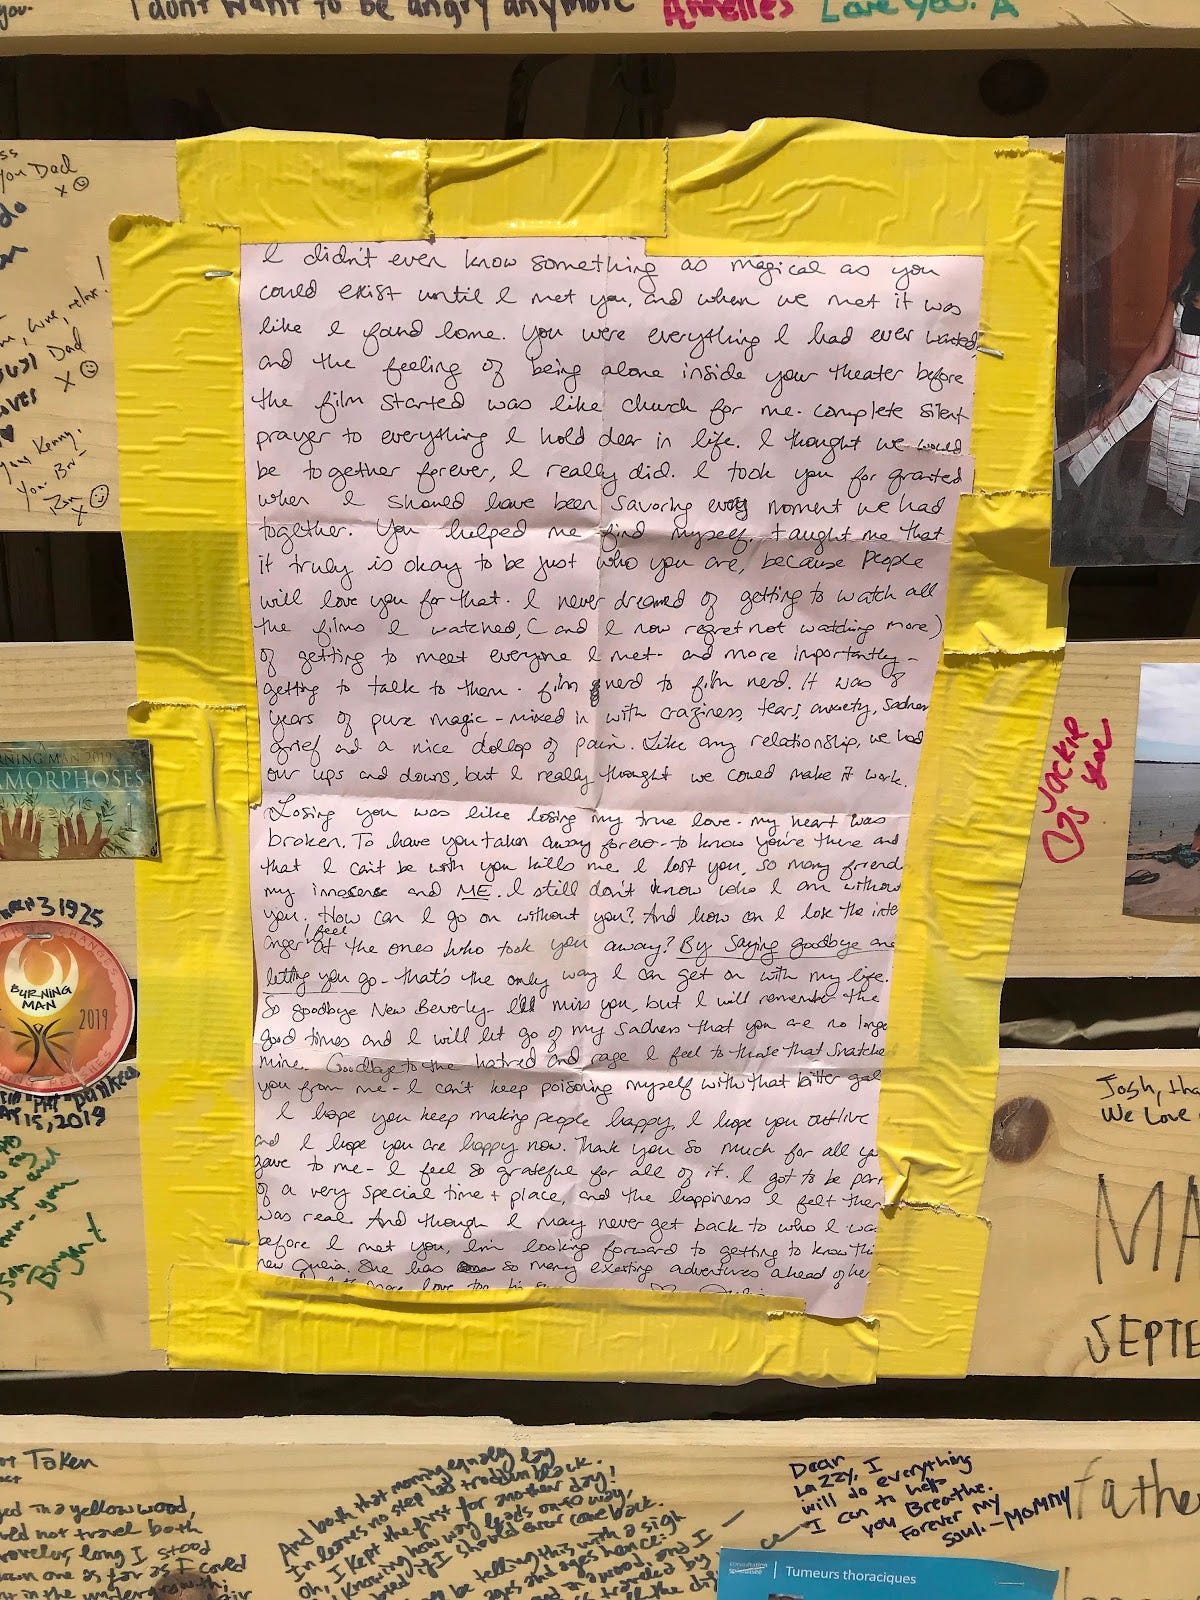 you.
I dont want to be angry anymore
Annelies
Love You. A
ss
you Dad
x
do
relax!
Dad
x
loves
you Kenny.
Your Br-
x
I didn't even know something as magical as you
could exist until I met you, and when we met it was
like I found home. You were everything I had ever wanted,
and the feeling of being alone inside your theater before
the film started was like church for me. complete silent
prayer to everything I hold dear in life. I thought we would
be together forever, I really did. I took you for granted
when I should have been savoring every moment we had
together. You helped me find myself, taught me that
it truly is okay to be just who you are, because people
will love you for that. I never dreamed of getting to watch all
the films I watched, (and I now regret not watching more)
of getting to meet everyone I met- and more importantly-
getting to talk to them. film nerd to film nerd. It was 8
years of pure magic - mixed in with craziness, tears, anxiety, sadness
grief and a nice dollop of pain. Like any relationship, we had
our ups and downs, but I really thought we could make it work.
Losing you was like losing my true love. my heart was
broken. To have you taken away forever- to know you're there and
that I can't be with you kills me. I lost you, so many friend
my innosense and ME. I still don't know who I am without
you. How can I go on without you? And how can I lose the inte
anger I feel at the ones who took you away? By saying goodbye and
letting you go - that's the only way I can get on with my life.
So goodbye New Beverly- I'll miss you, but I will remember the
good times and I will let go of my sadness that you are no longe
mine. Goodbye to the hatred and rage I feel to those that snatche
you from me - I can't keep poisoning myself with that bitter gal
I hope you keep making people happy, I hope you outlive
and I hope you are happy now. Thank you so much for all yo
gave to me - I feel so grateful for all of it. I got to be par
of a very special time + place, and the happiness I felt then
was real. And though I may never get back to who I was
before I met you, I'm looking forward to getting to know thi
new Julia. She has so many exciting adventures ahead of he
more love
JACKIE
BURNING MAN 2019
AMORPHOSES
31925
BURNING
MAN
2019
15, 2019
you and
Bryant
Josh, tha
We Love
MA
SEPTE
Taken
in a yellow wood,
not travel both
traveler, long I stood
down one as far as I could
in the undergrowth;
And both that morning equally lay
In leaves no step had trodden black.
Oh, I kept the first for another day!
Knowing how way leads onto way,
if I should ever come back.
be telling this with a sigh
ages and ages hence:
in a wood, and I -
traveled by
the dif
Dear
Lazzy, I
will do everything
I can to help
you Breathe.
Forever my
soul. - Mommy
fathe
Tumeurs thoraciques